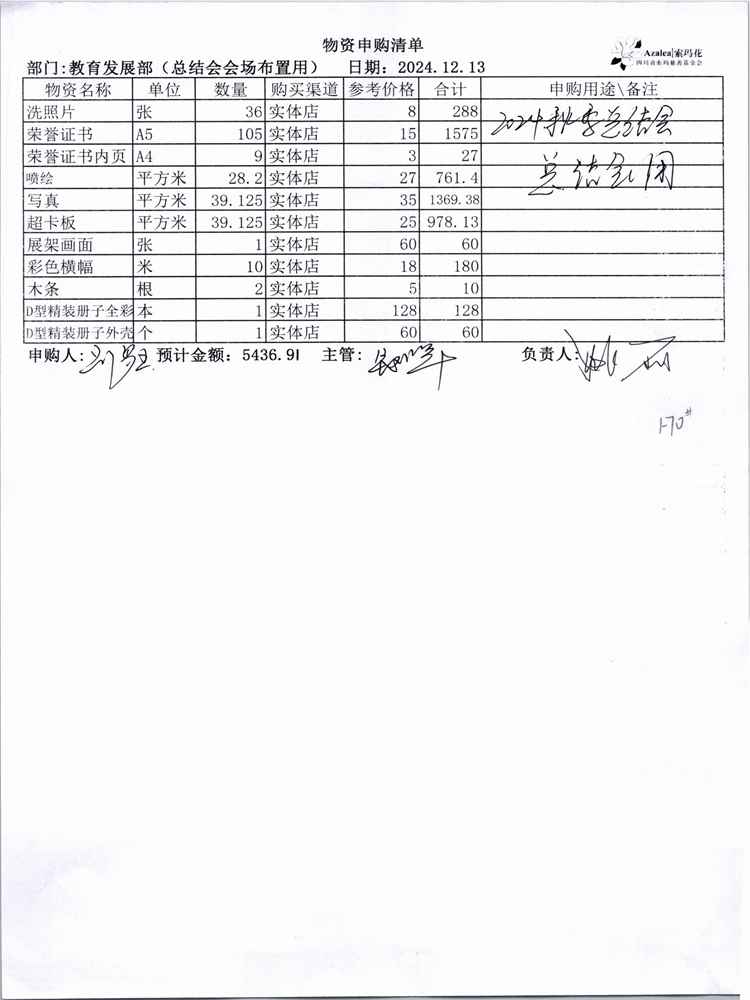 物资申购清单
Azalea|索玛花
四川省索玛慈善基金会
部门:教育发展部（总结会会场布置用） 日期：2024.12.13
物资名称 单位 数量 购买渠道 参考价格 合计 申购用途\备注
洗照片 张 36 实体店 8 288 2024秋季总结会
荣誉证书 A5 105 实体店 15 1575
荣誉证书内页 A4 9 实体店 3 27 总结会用
喷绘 平方米 28.2 实体店 27 761.4
写真 平方米 39.125 实体店 35 1369.38
超卡板 平方米 39.125 实体店 25 978.13
展架画面 张 1 实体店 60 60
彩色横幅 米 10 实体店 18 180
木条 根 2 实体店 5 10
D型精装册子全彩 本 1 实体店 128 128
D型精装册子外壳 个 1 实体店 60 60
申购人: 预计金额：5436.91 主管: 负责人:
170#